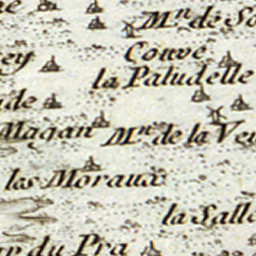 Mn. de So
ey
Couvé
la Paludelle
ude
Magan
Mn. de la Ve
los Moraux
la Salle
ar du Pra